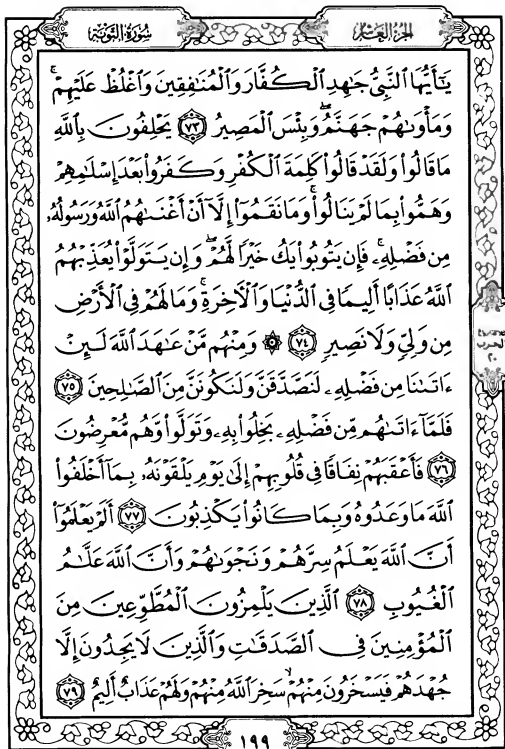 سُورَةُ التَّوْبَةِ
الجُزْءُ العَاشِرُ
يَٰٓأَيُّهَا ٱلنَّبِىُّ جَٰهِدِ ٱلْكُفَّارَ وَٱلْمُنَٰفِقِينَ وَٱغْلُظْ عَلَيْهِمْ ۚ
وَمَأْوَىٰهُمْ جَهَنَّمُ ۖ وَبِئْسَ ٱلْمَصِيرُ ﴿٧٣﴾ يَحْلِفُونَ بِٱللَّهِ
مَا قَالُوا۟ وَلَقَدْ قَالُوا۟ كَلِمَةَ ٱلْكُفْرِ وَكَفَرُوا۟ بَعْدَ إِسْلَٰمِهِمْ
وَهَمُّوا۟ بِمَا لَمْ يَنَالُوا۟ ۚ وَمَا نَقَمُوٓا۟ إِلَّآ أَنْ أَغْنَىٰهُمُ ٱللَّهُ وَرَسُولُهُۥ
مِن فَضْلِهِۦ ۚ فَإِن يَتُوبُوا۟ يَكُ خَيْرًا لَّهُمْ ۖ وَإِن يَتَوَلَّوْا۟ يُعَذِّبْهُمُ
ٱللَّهُ عَذَابًا أَلِيمًا فِى ٱلدُّنْيَا وَٱلْءَاخِرَةِ ۚ وَمَا لَهُمْ فِى ٱلْأَرْضِ
مِن وَلِىٍّ وَلَا نَصِيرٍ ﴿٧٤﴾ ۞ وَمِنْهُم مَّنْ عَٰهَدَ ٱللَّهَ لَئِنْ
ءَاتَىٰنَا مِن فَضْلِهِۦ لَنَصَّدَّقَنَّ وَلَنَكُونَنَّ مِنَ ٱلصَّٰلِحِينَ ﴿٧٥﴾
فَلَمَّآ ءَاتَىٰهُم مِّن فَضْلِهِۦ بَخِلُوا۟ بِهِۦ وَتَوَلَّوا۟ وَّهُم مُّعْرِضُونَ
﴿٧٦﴾ فَأَعْقَبَهُمْ نِفَاقًا فِى قُلُوبِهِمْ إِلَىٰ يَوْمِ يَلْقَوْنَهُۥ بِمَآ أَخْلَفُوا۟
ٱللَّهَ مَا وَعَدُوهُ وَبِمَا كَانُوا۟ يَكْذِبُونَ ﴿٧٧﴾ أَلَمْ يَعْلَمُوٓا۟
أَنَّ ٱللَّهَ يَعْلَمُ سِرَّهُمْ وَنَجْوَىٰهُمْ وَأَنَّ ٱللَّهَ عَلَّٰمُ
ٱلْغُيُوبِ ﴿٧٨﴾ ٱلَّذِينَ يَلْمِزُونَ ٱلْمُطَّوِّعِينَ مِنَ
ٱلْمُؤْمِنِينَ فِى ٱلصَّدَقَٰتِ وَٱلَّذِينَ لَا يَجِدُونَ إِلَّا
جُهْدَهُمْ فَيَسْخَرُونَ مِنْهُمْ ۙ سَخِرَ ٱللَّهُ مِنْهُمْ وَلَهُمْ عَذَابٌ أَلِيمٌ ﴿٧٩﴾
الحزب
٢٠
١٩٩